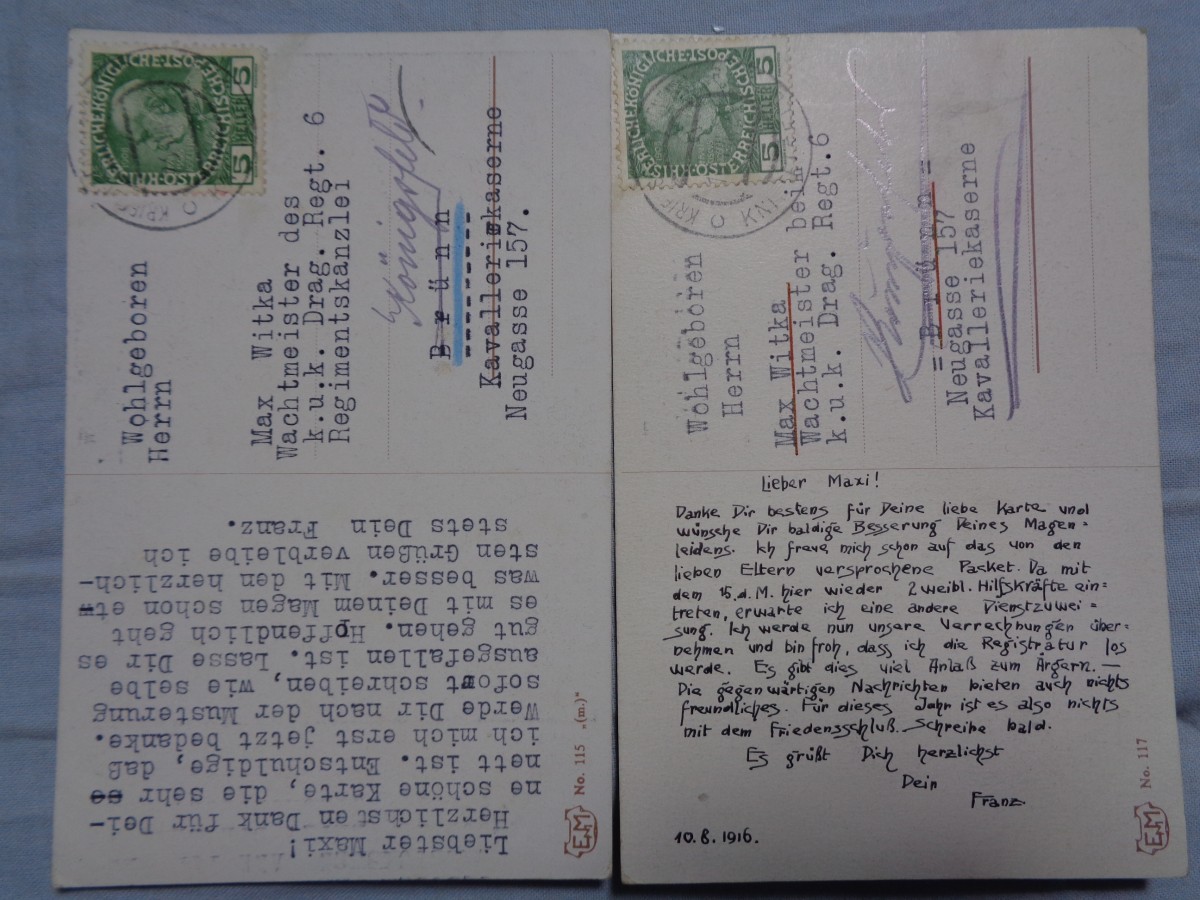 KAISERLICHE KÖNIGLICHE ÖSTERREICHISCHE POST
5 HELLER 5
Wohlgeboren
Herrn
Max Witka
Wachtmeister des
k.u.k. Drag. Regt. 6
Regimentskanzlei
Königsfeld
Brünn
Kavalleriekaserne
Neugasse 157.
Liebster Maxi!
Herzlichsten Dank für Dei-
ne schöne Karte, die sehr
nett ist. Entschuldige, daß
ich mich erst jetzt bedanke.
Werde Dir nach der Musterung
sofort schreiben, wie selbe
ausgefallen ist. Lasse Dir es
gut gehen. Hoffendlich geht
es mit Deinem Magen schon et-
was besser. Mit den herzlich-
sten Grüßen verbleibe ich
stets Dein Franz.
EM
No. 115 „(m.)"
5 HELLER 5
Wohlgeboren
Herrn
Max Witka
Wachtmeister beim
k.u.k. Drag. Regt.6
= Brünn =
Neugasse 157
Kavalleriekaserne
Lieber Maxi!
Danke Dir bestens für Deine liebe Karte und
wünsche Dir baldige Besserung Deines Magen=
leidens. Ich freue mich schon auf das von den
lieben Eltern versprochene Packet. Da mit
dem 15.d.M. hier wieder 2 weibl. Hilfskräfte ein-
treten, erwarte ich eine andere Dienstzuwei=
sung. Ich werde nun unsere Verrechnungen über=
nehmen und bin froh, dass ich die Registratur los
werde. Es gibt dies viel Anlaß zum Ärgern. —
Die gegenwärtigen Nachrichten bieten auch nichts
freundliches. Für dieses Jahr ist es also nichts
mit dem Friedensschluß. Schreibe bald.
Es grüßt Dich herzlichst
Dein
Franz
10.8.1916.
EM
No. 117